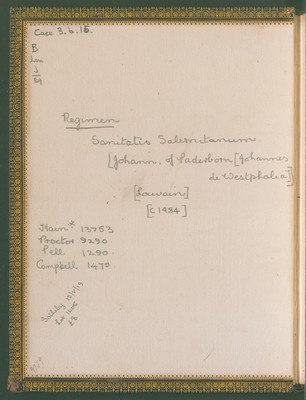 Case 3.b.16.
B
Lou
J
Eg
Regimen
Sanitatis Salernitanum
[Johann, of Paderborn [Johannes
de Westphalia]]
[Louvain]
[c 1484]
Hain * 13753
Proctor 9290
Pell. 1290
Campbell 1470
Sotheby